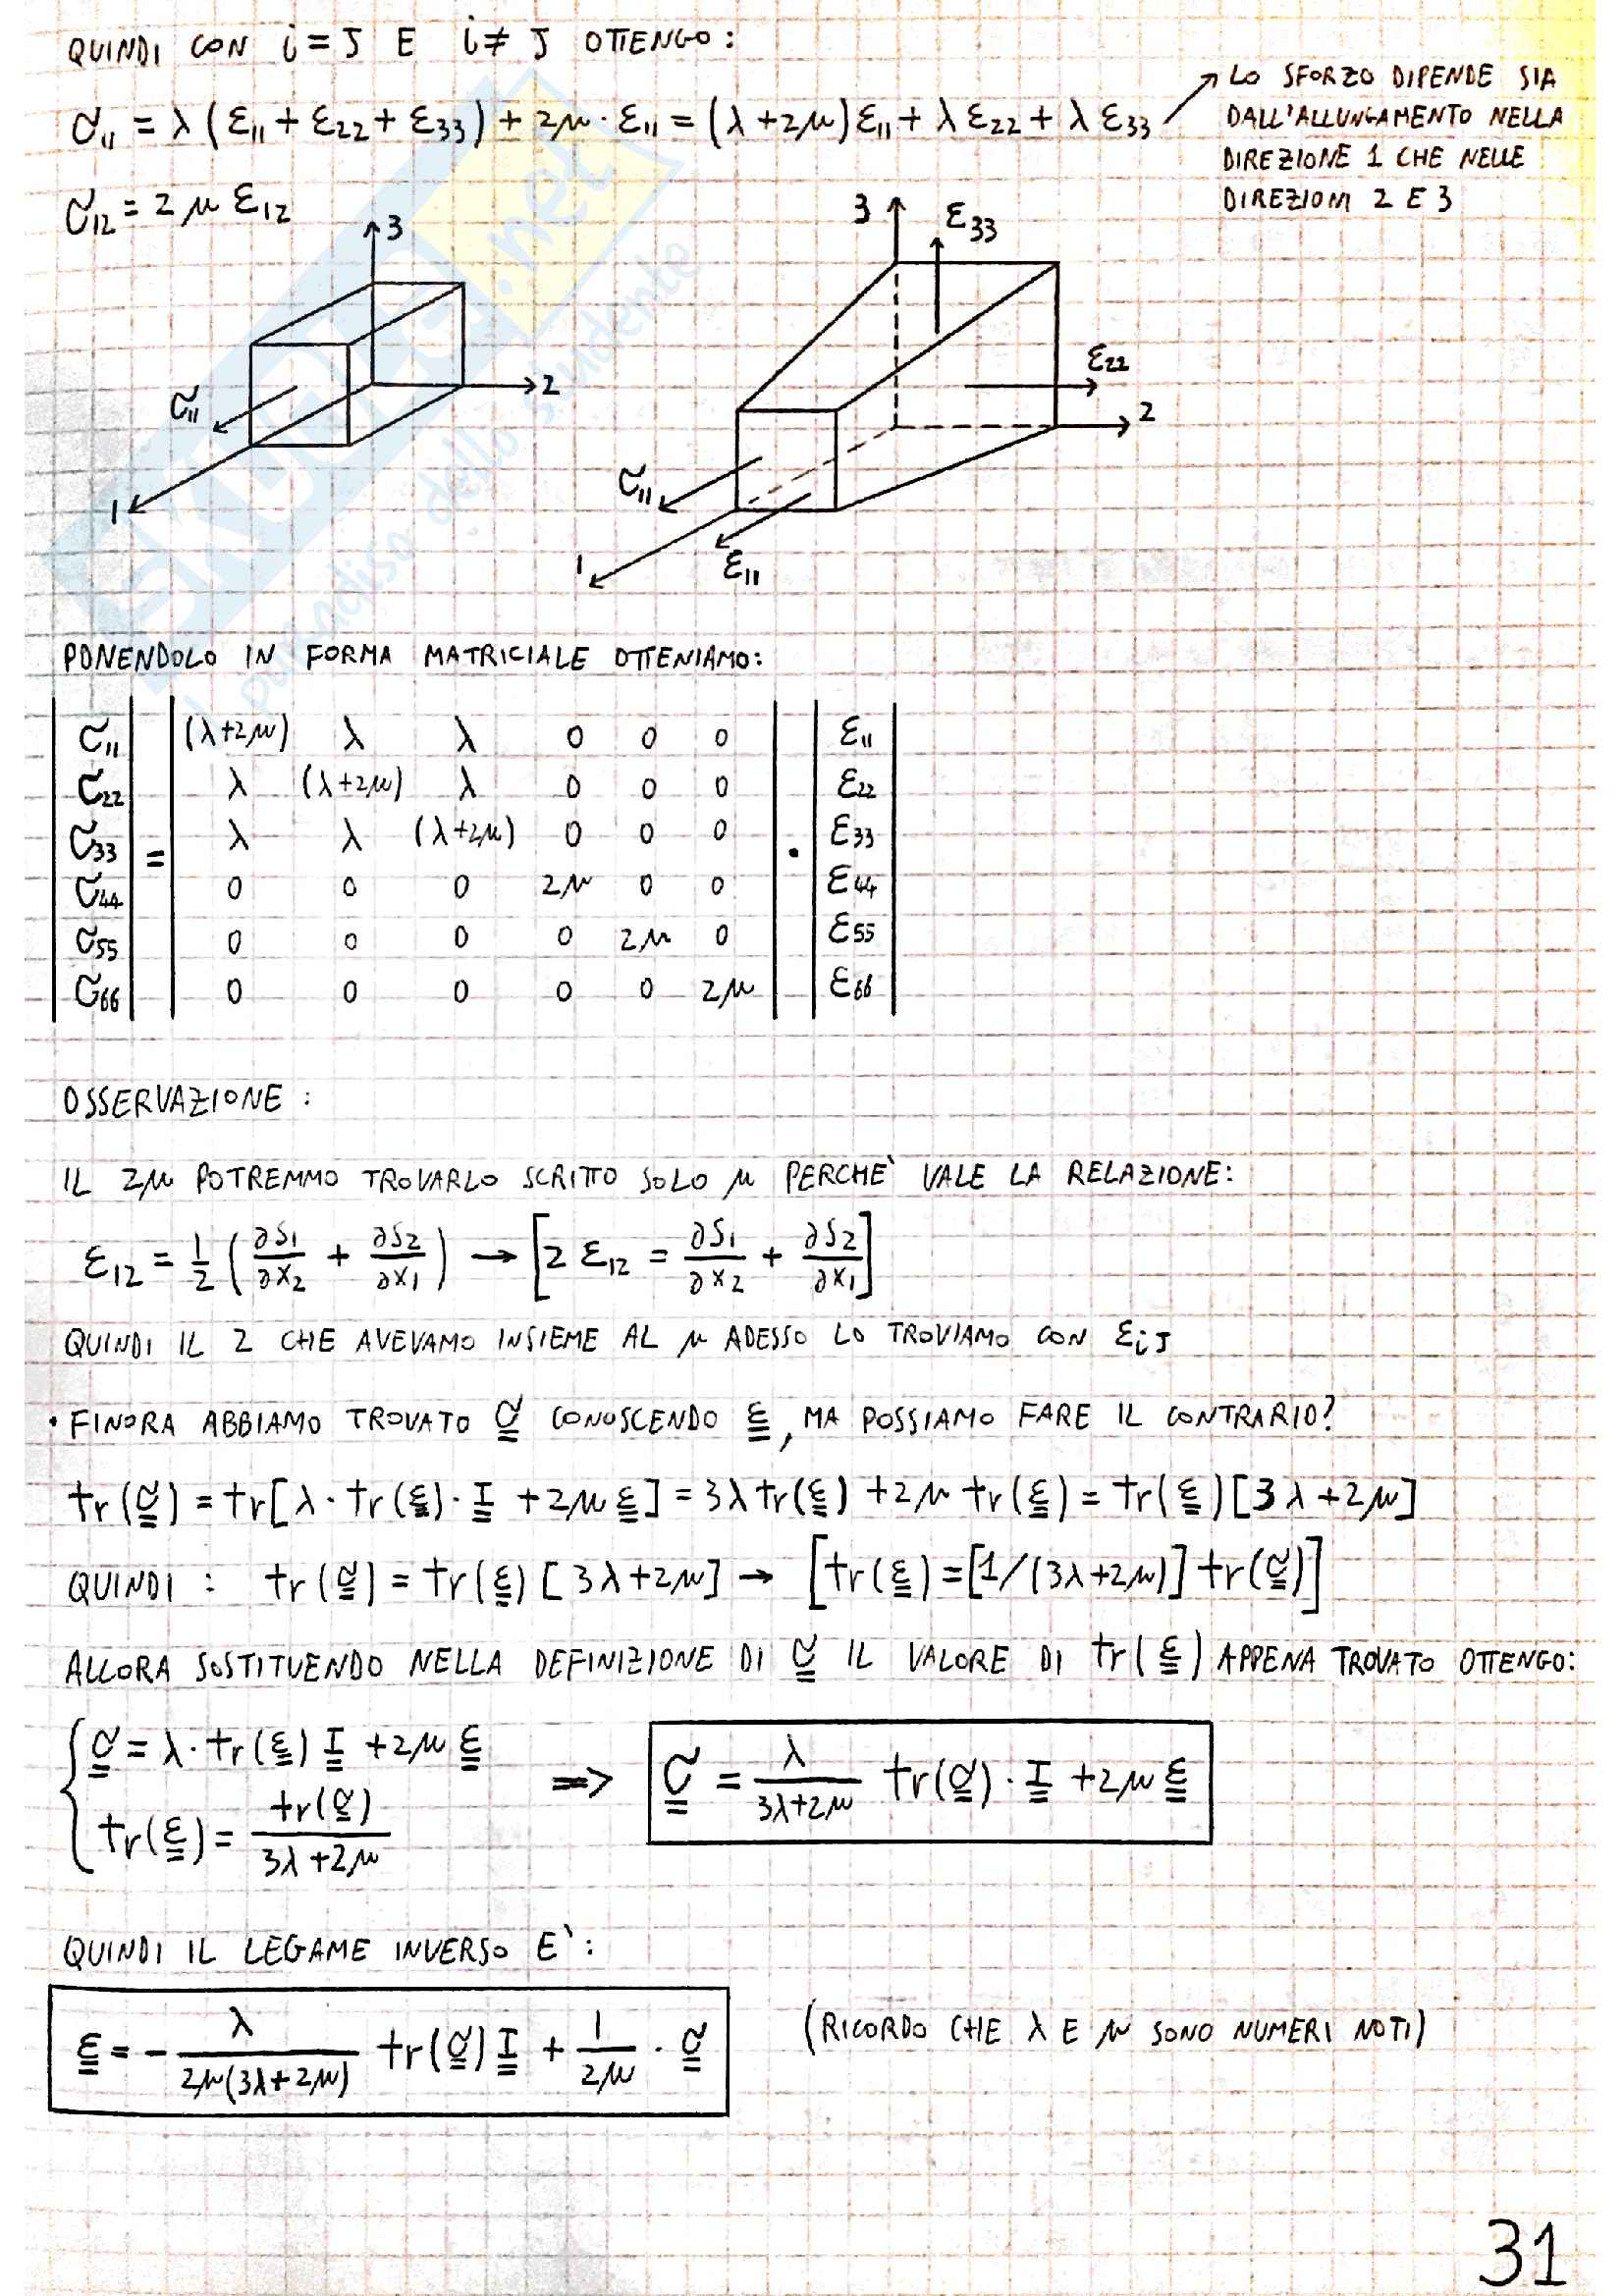 QUINDI CON i = J E i ≠ J OTTENGO:
σ₁₁ = λ (ε₁₁ + ε₂₂ + ε₃₃) + 2μ · ε₁₁ = (λ + 2μ) ε₁₁ + λ ε₂₂ + λ ε₃₃
LO SFORZO DIPENDE SIA
DALL'ALLUNGAMENTO NELLA
DIREZIONE 1 CHE NELLE
DIREZIONI 2 E 3
σ₁₂ = 2 μ ε₁₂
3
2
1
σ₁₁
3
ε₃₃
ε₂₂
2
σ₁₁
1
ε₁₁
PONENDOLO IN FORMA MATRICIALE OTTENIAMO:
| σ₁₁ | | (λ+2μ) λ λ 0 0 0 | | ε₁₁ |
| σ₂₂ | | λ (λ+2μ) λ 0 0 0 | | ε₂₂ |
| σ₃₃ | = | λ λ (λ+2μ) 0 0 0 | · | ε₃₃ |
| σ₄₄ | | 0 0 0 2μ 0 0 | | ε₄₄ |
| σ₅₅ | | 0 0 0 0 2μ 0 | | ε₅₅ |
| σ₆₆ | | 0 0 0 0 0 2μ | | ε₆₆ |
OSSERVAZIONE:
IL 2μ POTREMMO TROVARLO SCRITTO SOLO μ PERCHE' VALE LA RELAZIONE:
ε₁₂ = 1/2 (∂S₁/∂x₂ + ∂S₂/∂x₁) → [2 ε₁₂ = ∂S₁/∂x₂ + ∂S₂/∂x₁]
QUINDI IL 2 CHE AVEVAMO INSIEME AL μ ADESSO LO TROVIAMO CON εiJ
• FINORA ABBIAMO TROVATO σ CONOSCENDO ε, MA POSSIAMO FARE IL CONTRARIO?
tr(σ) = tr[λ · tr(ε) · I + 2μ ε] = 3λ tr(ε) + 2μ tr(ε) = tr(ε) [3λ + 2μ]
QUINDI: tr(σ) = tr(ε) [3λ+2μ] → [tr(ε) = [1/(3λ+2μ)] tr(σ)]
ALLORA SOSTITUENDO NELLA DEFINIZIONE DI σ IL VALORE DI tr(ε) APPENA TROVATO OTTENGO:
{ σ = λ · tr(ε) I + 2μ ε
tr(ε) = tr(σ)/3λ+2μ
=> σ = λ/3λ+2μ tr(σ) · I + 2μ ε
QUINDI IL LEGAME INVERSO E':
ε = - λ/2μ(3λ+2μ) tr(σ) I + 1/2μ · σ
(RICORDO CHE λ E μ SONO NUMERI NOTI)
31